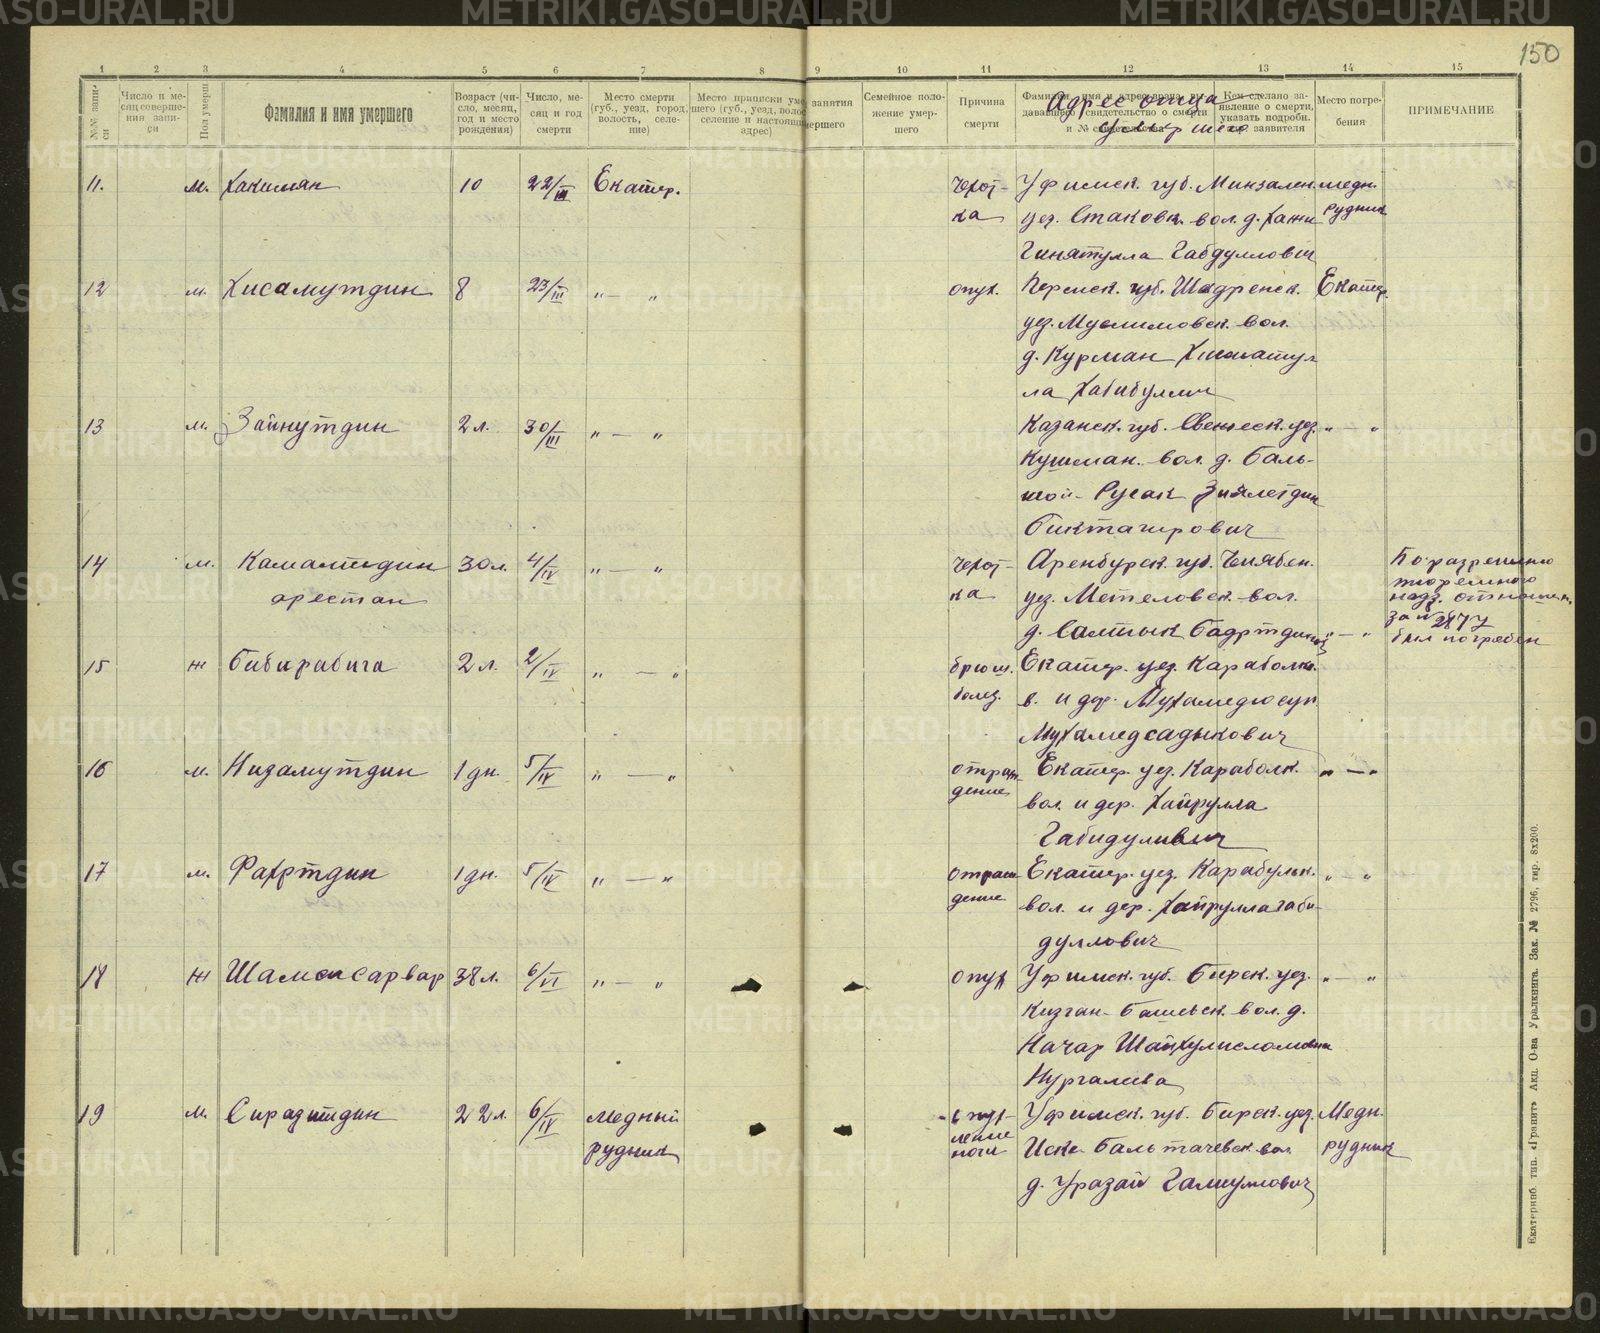 METRIKI.GASO-URAL.RU
150
1 2 3 4 5 6 7 8 9 10 11 12 13 14 15
№№ записи
Число и месяц совершения записи
Пол умерш
Фамилия и имя умершего
Возраст (число, месяц, год и место рождения)
Число, месяц и год смерти
Место смерти (губ., уезд, город, волость, селение)
Место приписки умершего (губ., уезд, волос селение и настоящи адрес)
занятия умершего
Семейное положение умершего
Причина смерти
Фамилия, имя и адрес врача, выдавшего свидетельство о смерти и № свидетельства
Адрес отца
умершего
Кем сделано заявление о смерти, указать подробн. заявителя
Место погребения
ПРИМЕЧАНИЕ
11. м. Хакимян 10 22/III Екатер. Чехот- Уфимск. губ. Минзален. медн.
ка уез. Стаковск. вол. д. Хажи рудник
Гинятулла Габдуллович
12 м. Хисамутдин 8 23/III „ — „ опух. Пермск. губ. Шадренск. Екатер.
уез. Муслимовск. вол.
д. Курман Хикматул
ла Хабибуллич
13 м. Зайнутдин 2 л. 30/III „ — „ Казанск. губ. Свеяжск. уез. „ — „
Кушман. вол. д. Баль-
шой- Русак Зиялетдин
Биктагирович
14 м. Камалтидин 30 л. 4/IV „ — „ Чехот- Аренбурск. губ. Челябен. По разрешению
арестан ка уез. Метеловск. вол. тюремного
надз. отношен.
д. Салтык Бадртдинов „ — „ за № 2877
был погребен
15 ж Бибирабига 2 л. 2/IV „ — „ брюш. Екатер. уез. Караболк.
болез. в. и дер. Мухамедюсуп
Мухамедсадыкович
16 м. Низамутдин 1 дн. 5/IV „ — „ отраж Екатер. уез. Караболк. „ — „
дение вол. и дер. Хайрулла
Габидуливич
17 м. Фахртдин 1 дн. 5/IV „ — „ отраж Екатер. уез. Карабульк. „ — „
дение вол. и дер. Хайрулла габи-
дуллович
18 ж Шамсисарвар 38 л. 6/VI „ — „ опух Уфимск. губ. Бирск. уез. „ — „
Кизган- Башевск. вол. д.
Начар Шайхулисломовна
Нургалиева
19 м. Сиразитдин 22 л. 6/IV медный Уфимск. губ. Бирск. уез. Медн.
рудник ночи Иске- Бальтачевск вол. рудник
д. Уразай Галиуллович
Екатеринб. тип. «Гранит» Акц. О-ва Уралкнига. Зак. № 2796, тир. 8х200.